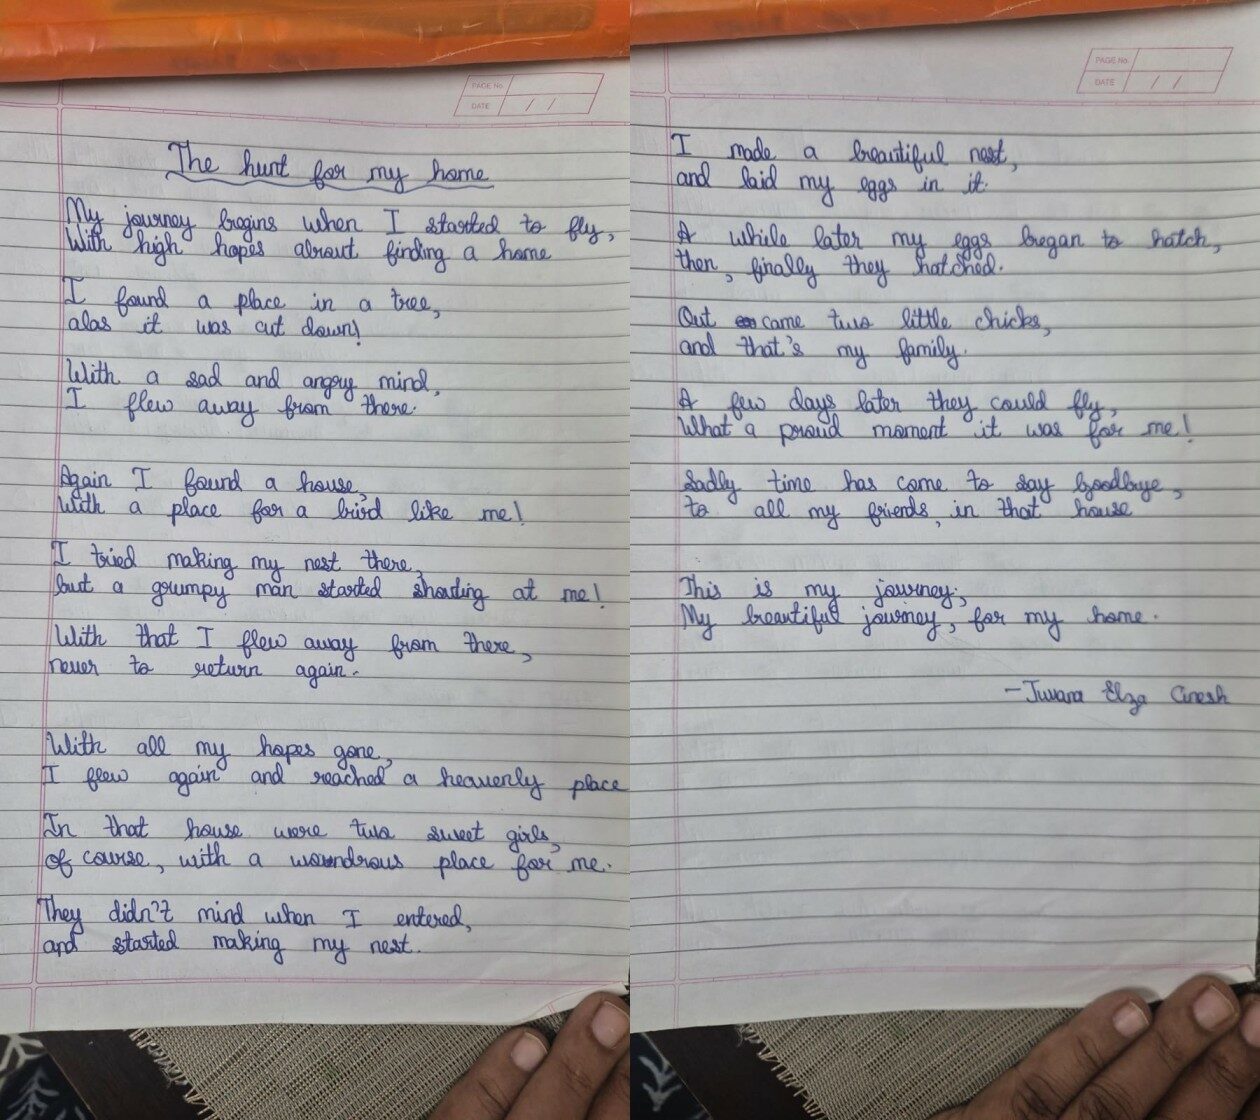 PAGE No.
DATE / /
The hunt for my home
My journey begins when I started to fly,
With high hopes about finding a home
I found a place in a tree,
alas it was cut down!
With a sad and angry mind,
I flew away from there.
Again I found a house,
With a place for a bird like me!
I tried making my nest there,
but a grumpy man started shouting at me!
With that I flew away from there,
never to return again.
With all my hopes gone,
I flew again and reached a heavenly place
In that house were two sweet girls,
of course, with a wondrous place for me.
They didn't mind when I entered,
and started making my nest.
PAGE No.
DATE / /
I made a beautiful nest,
and laid my eggs in it.
A while later my eggs began to hatch,
then, finally they hatched.
Out came two little chicks,
and that's my family.
A few days later they could fly,
What a proud moment it was for me!
Sadly time has come to say goodbye,
to all my friends, in that house
This is my journey;
My beautiful journey, for my home.
- Elza